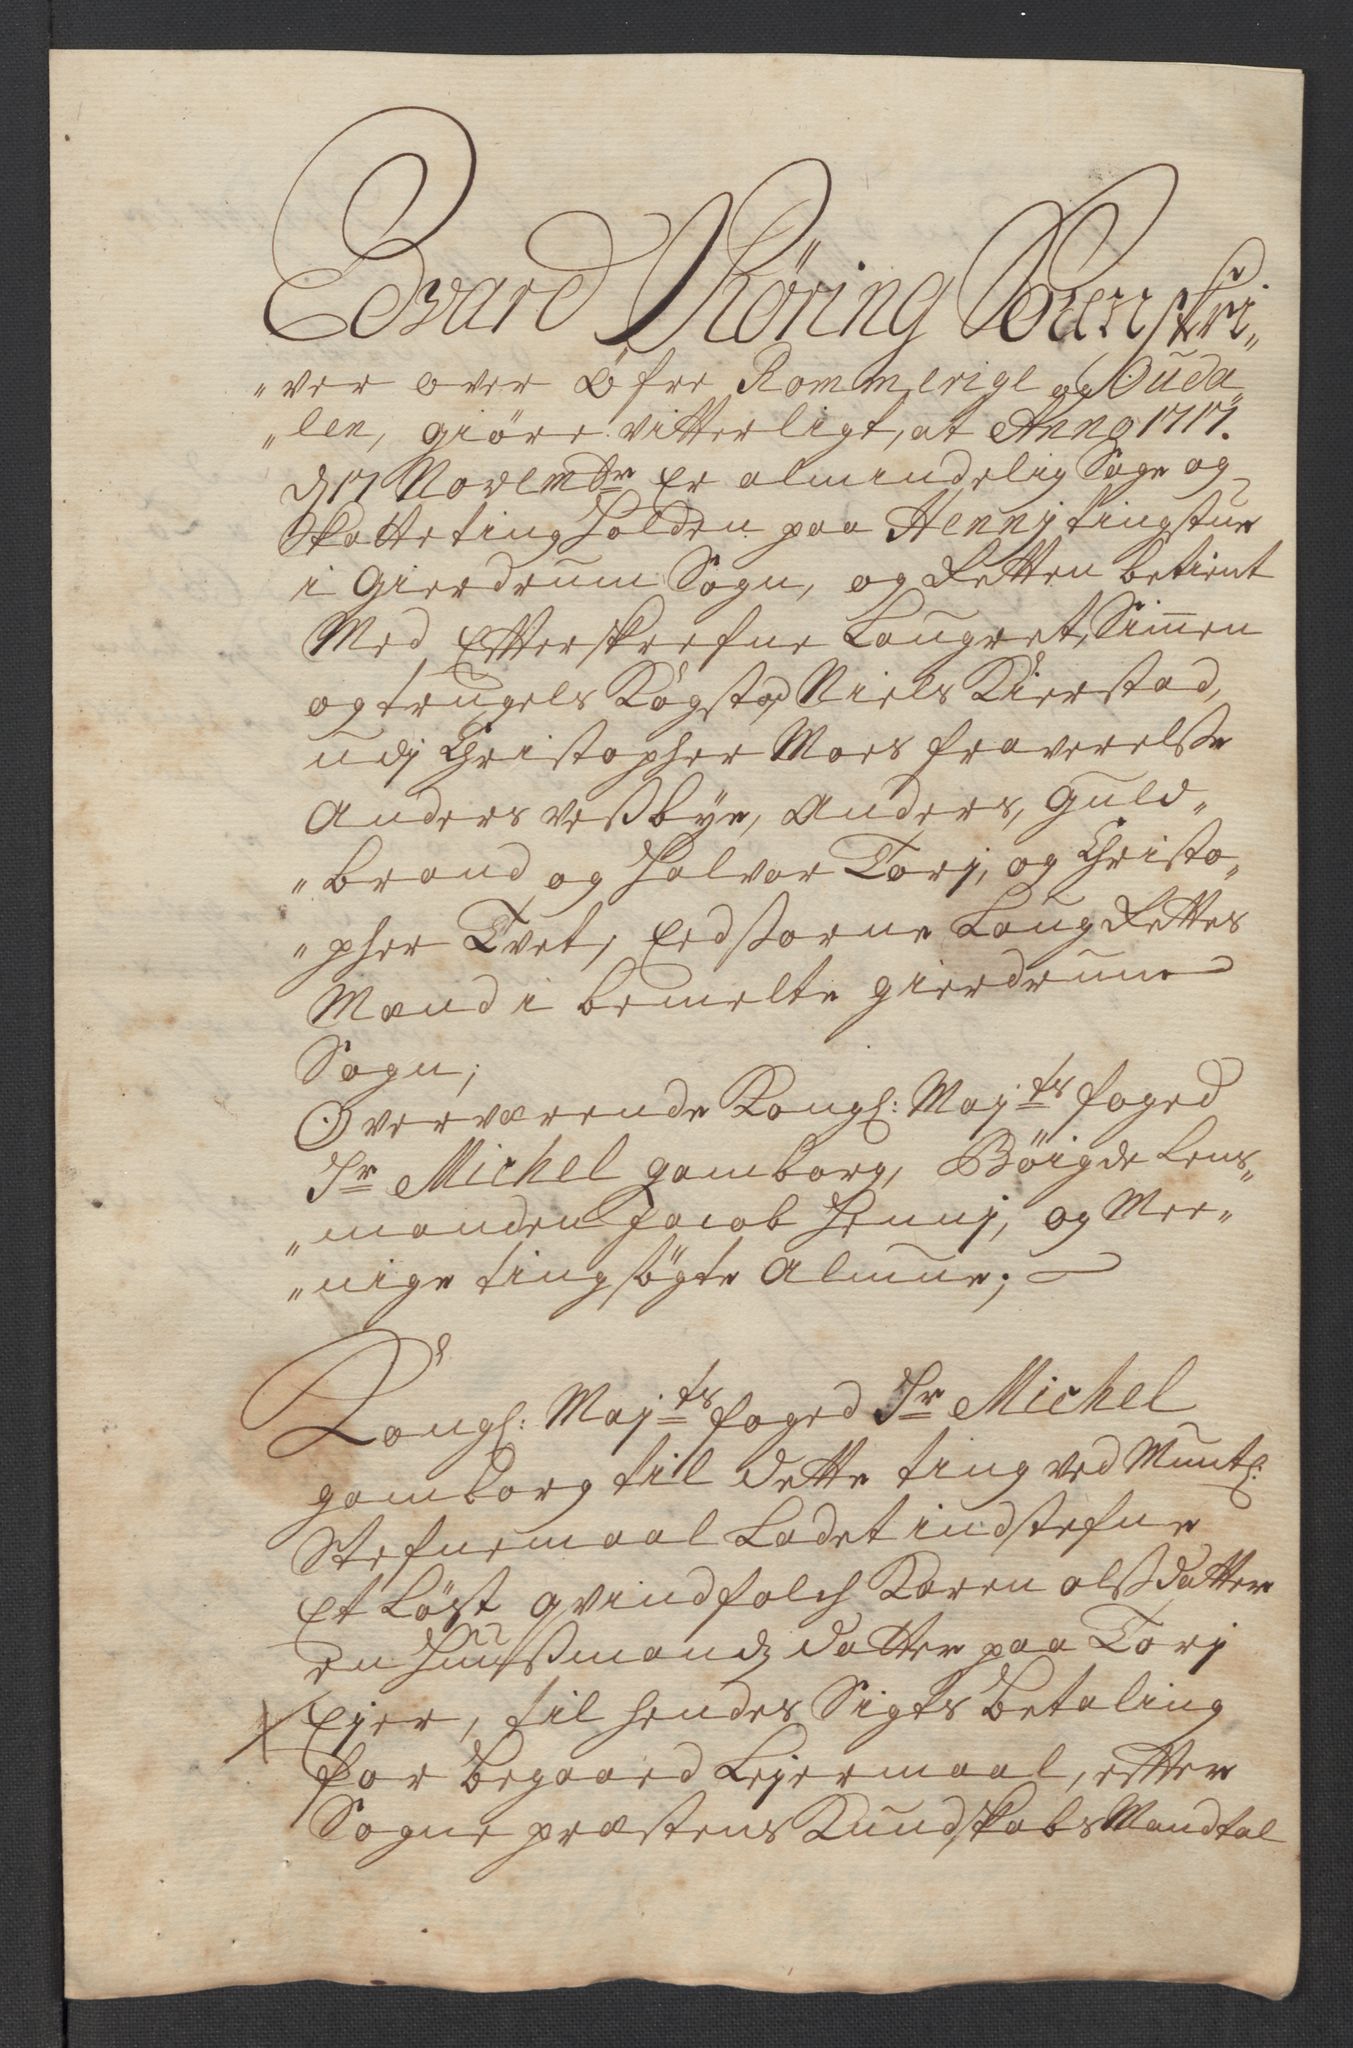 Edvard Röring Soren skri„
„ver over Öfre Rommerige og Ouda„
„len, giöre vitterligt, at Anno 1717.
d 17 Novembr Er almindelig Sage og
Skatteting holden paa Hennj tingstue
i Gierdrum Sogn, og Retten betient
Med Efterskrefne Laugret, Simen
og trugels Kögstad, Niels Kierstad,
udj Christopher Moes fraverelsse
Anders veßbye, Anders, Guld„
„brand og Halvor Torj, og Christo„
„pher Tvet, Eedsorne Laug Rettes
Mænd i bemelte gierdrum
Sogn;
Overværende Kongl: Majts foged
Sr Michel gamborg, Böigde Lens„
„manden Jacob Hennj, og Mee„
„nige tingsögte Almue;
Kongl: Majts foged Sr Michel
gamborg til dette ting ved Muntl:
Stefnemaal Ladet indstefne
Et Löst qvindfolch Karen olß datter
en Huußmandz datter paa Torj
Ejer, til hendes Sigts betaling
for begaaed Lejermaal, efter
Sogne præstens Kundskabs Mandtal